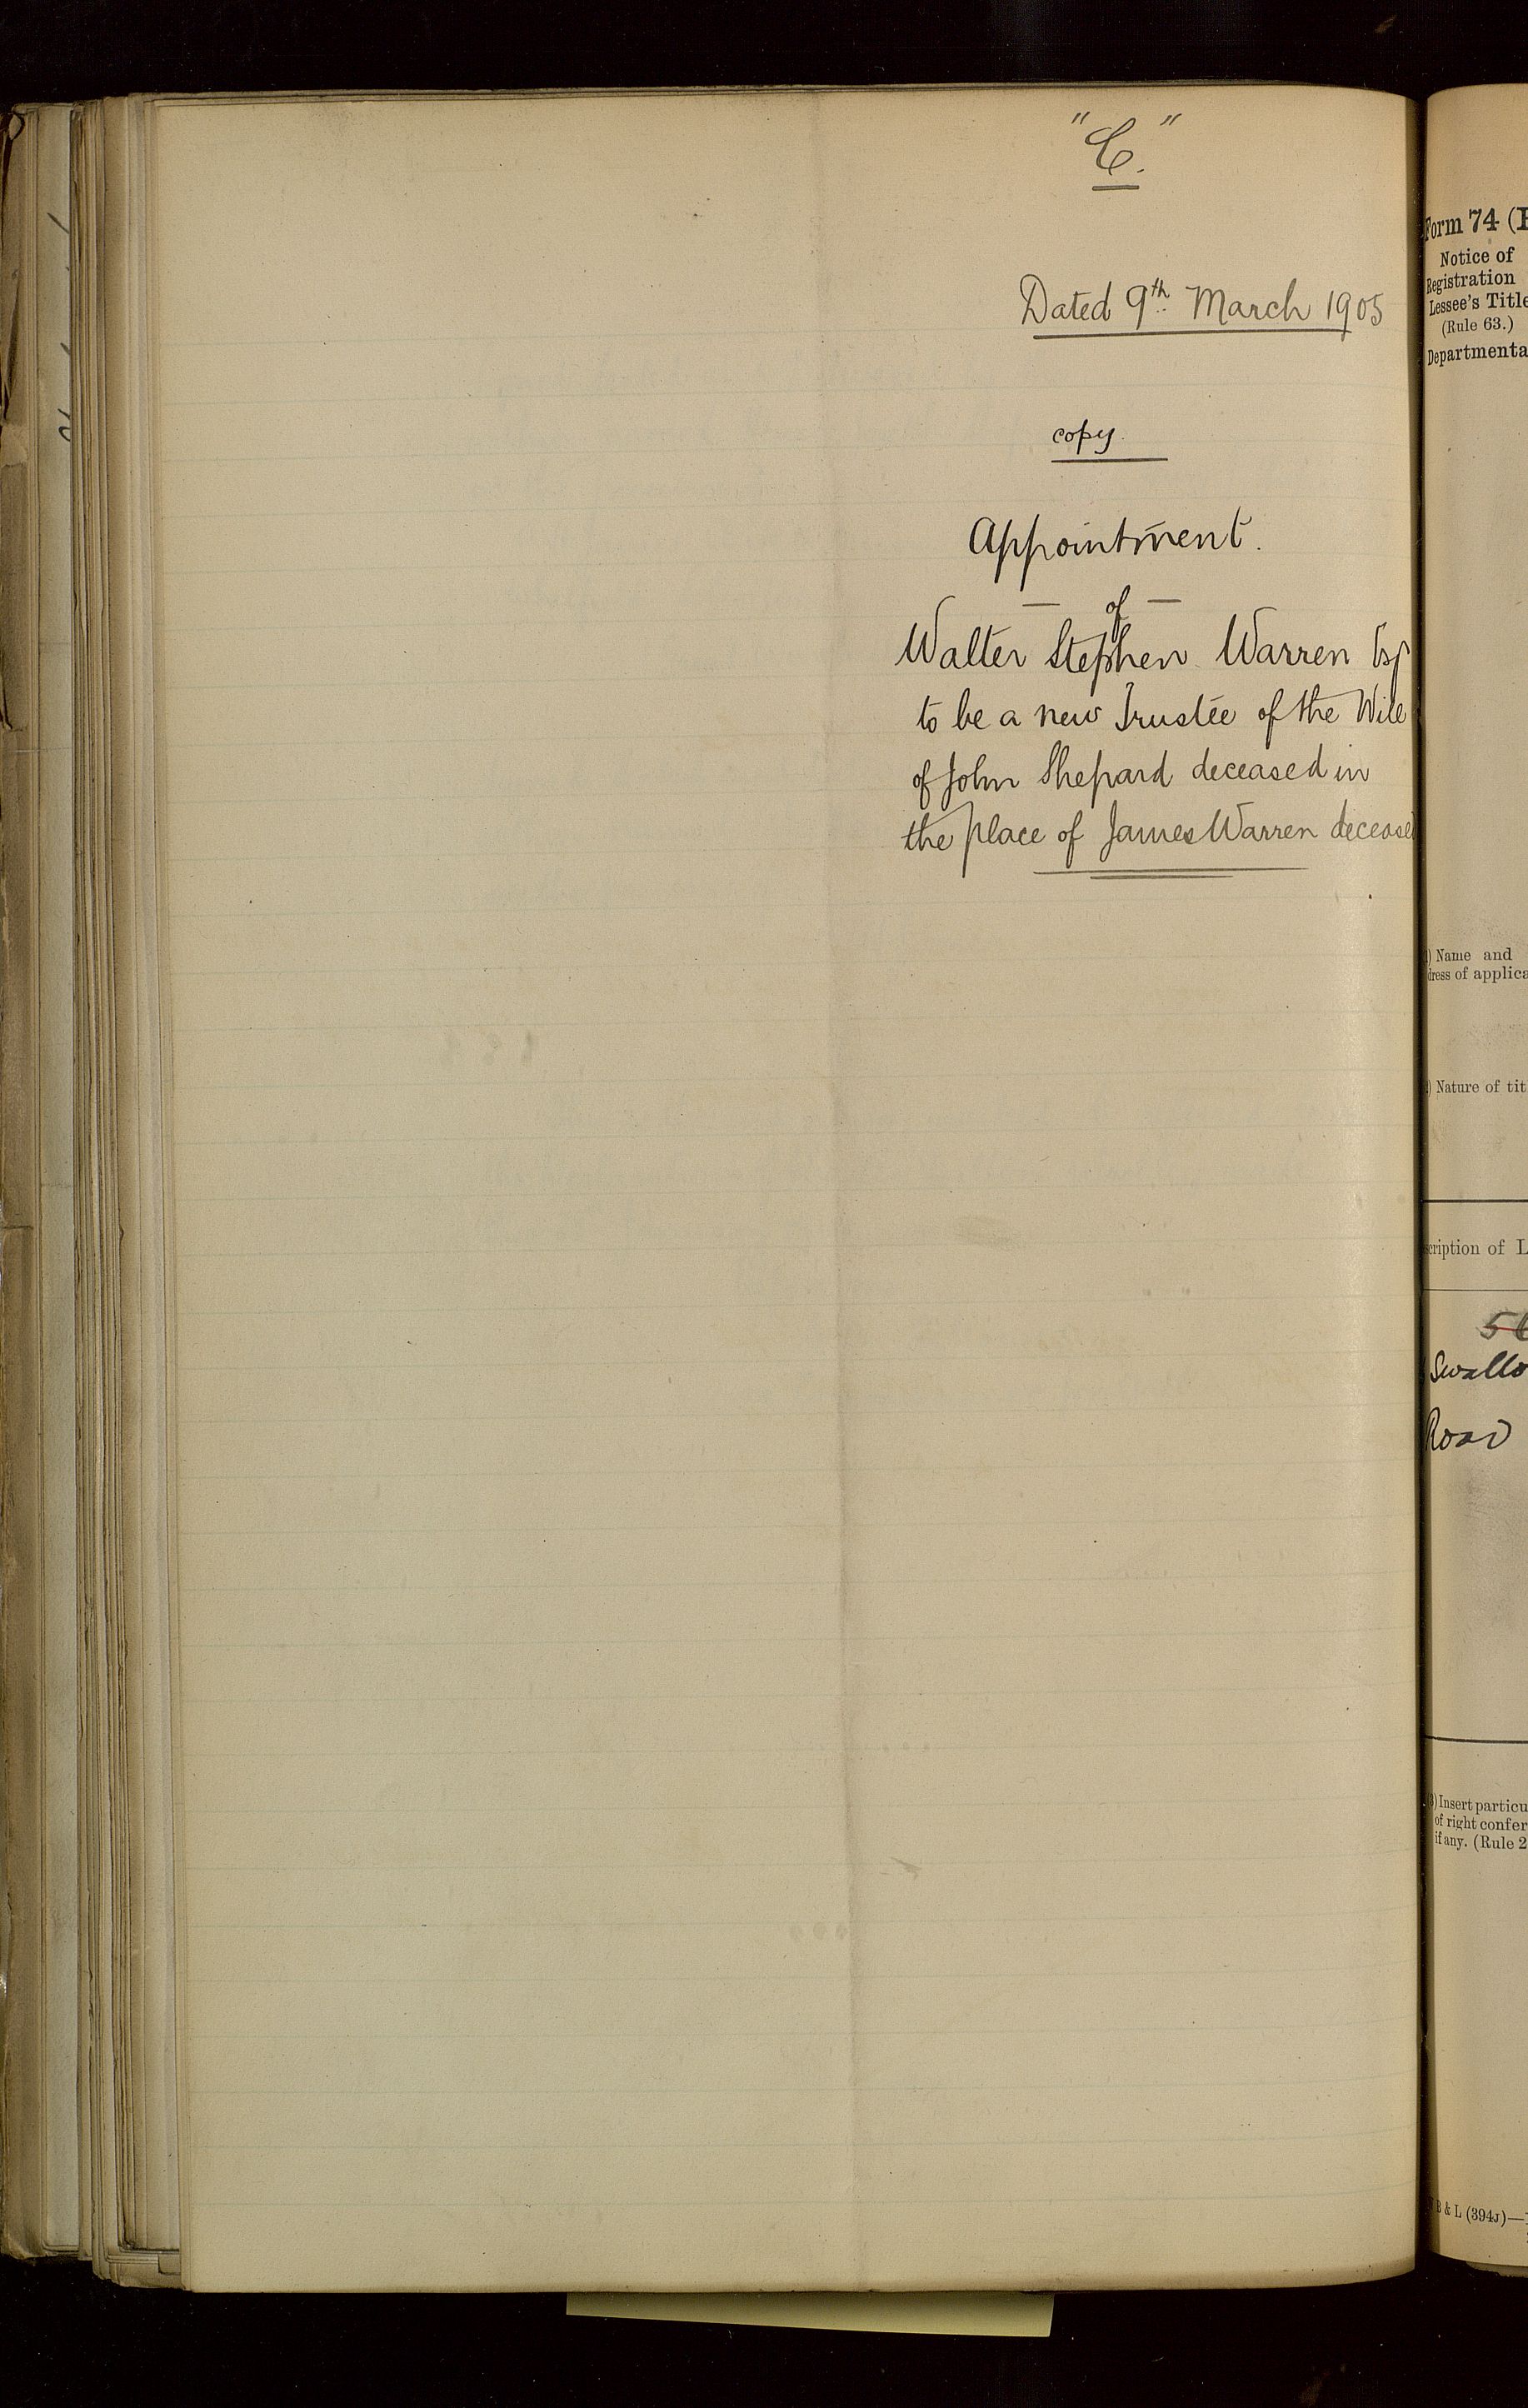 "C."
Dated 9th March 1905
copy.
Appointment.
— of —
Walter Stephen Warren Esq
to be a new Trustee of the Will
of John Shepard deceased in
the place of James Warren decease
Form 74 (
Notice of
Registration
Lessee's Title
(Rule 63.)
Departmenta
) Name and
dress of applica
) Nature of tit
cription of L
Swallo
Road
) Insert particu
of right confer
if any. (Rule 2
B & L (394J)—